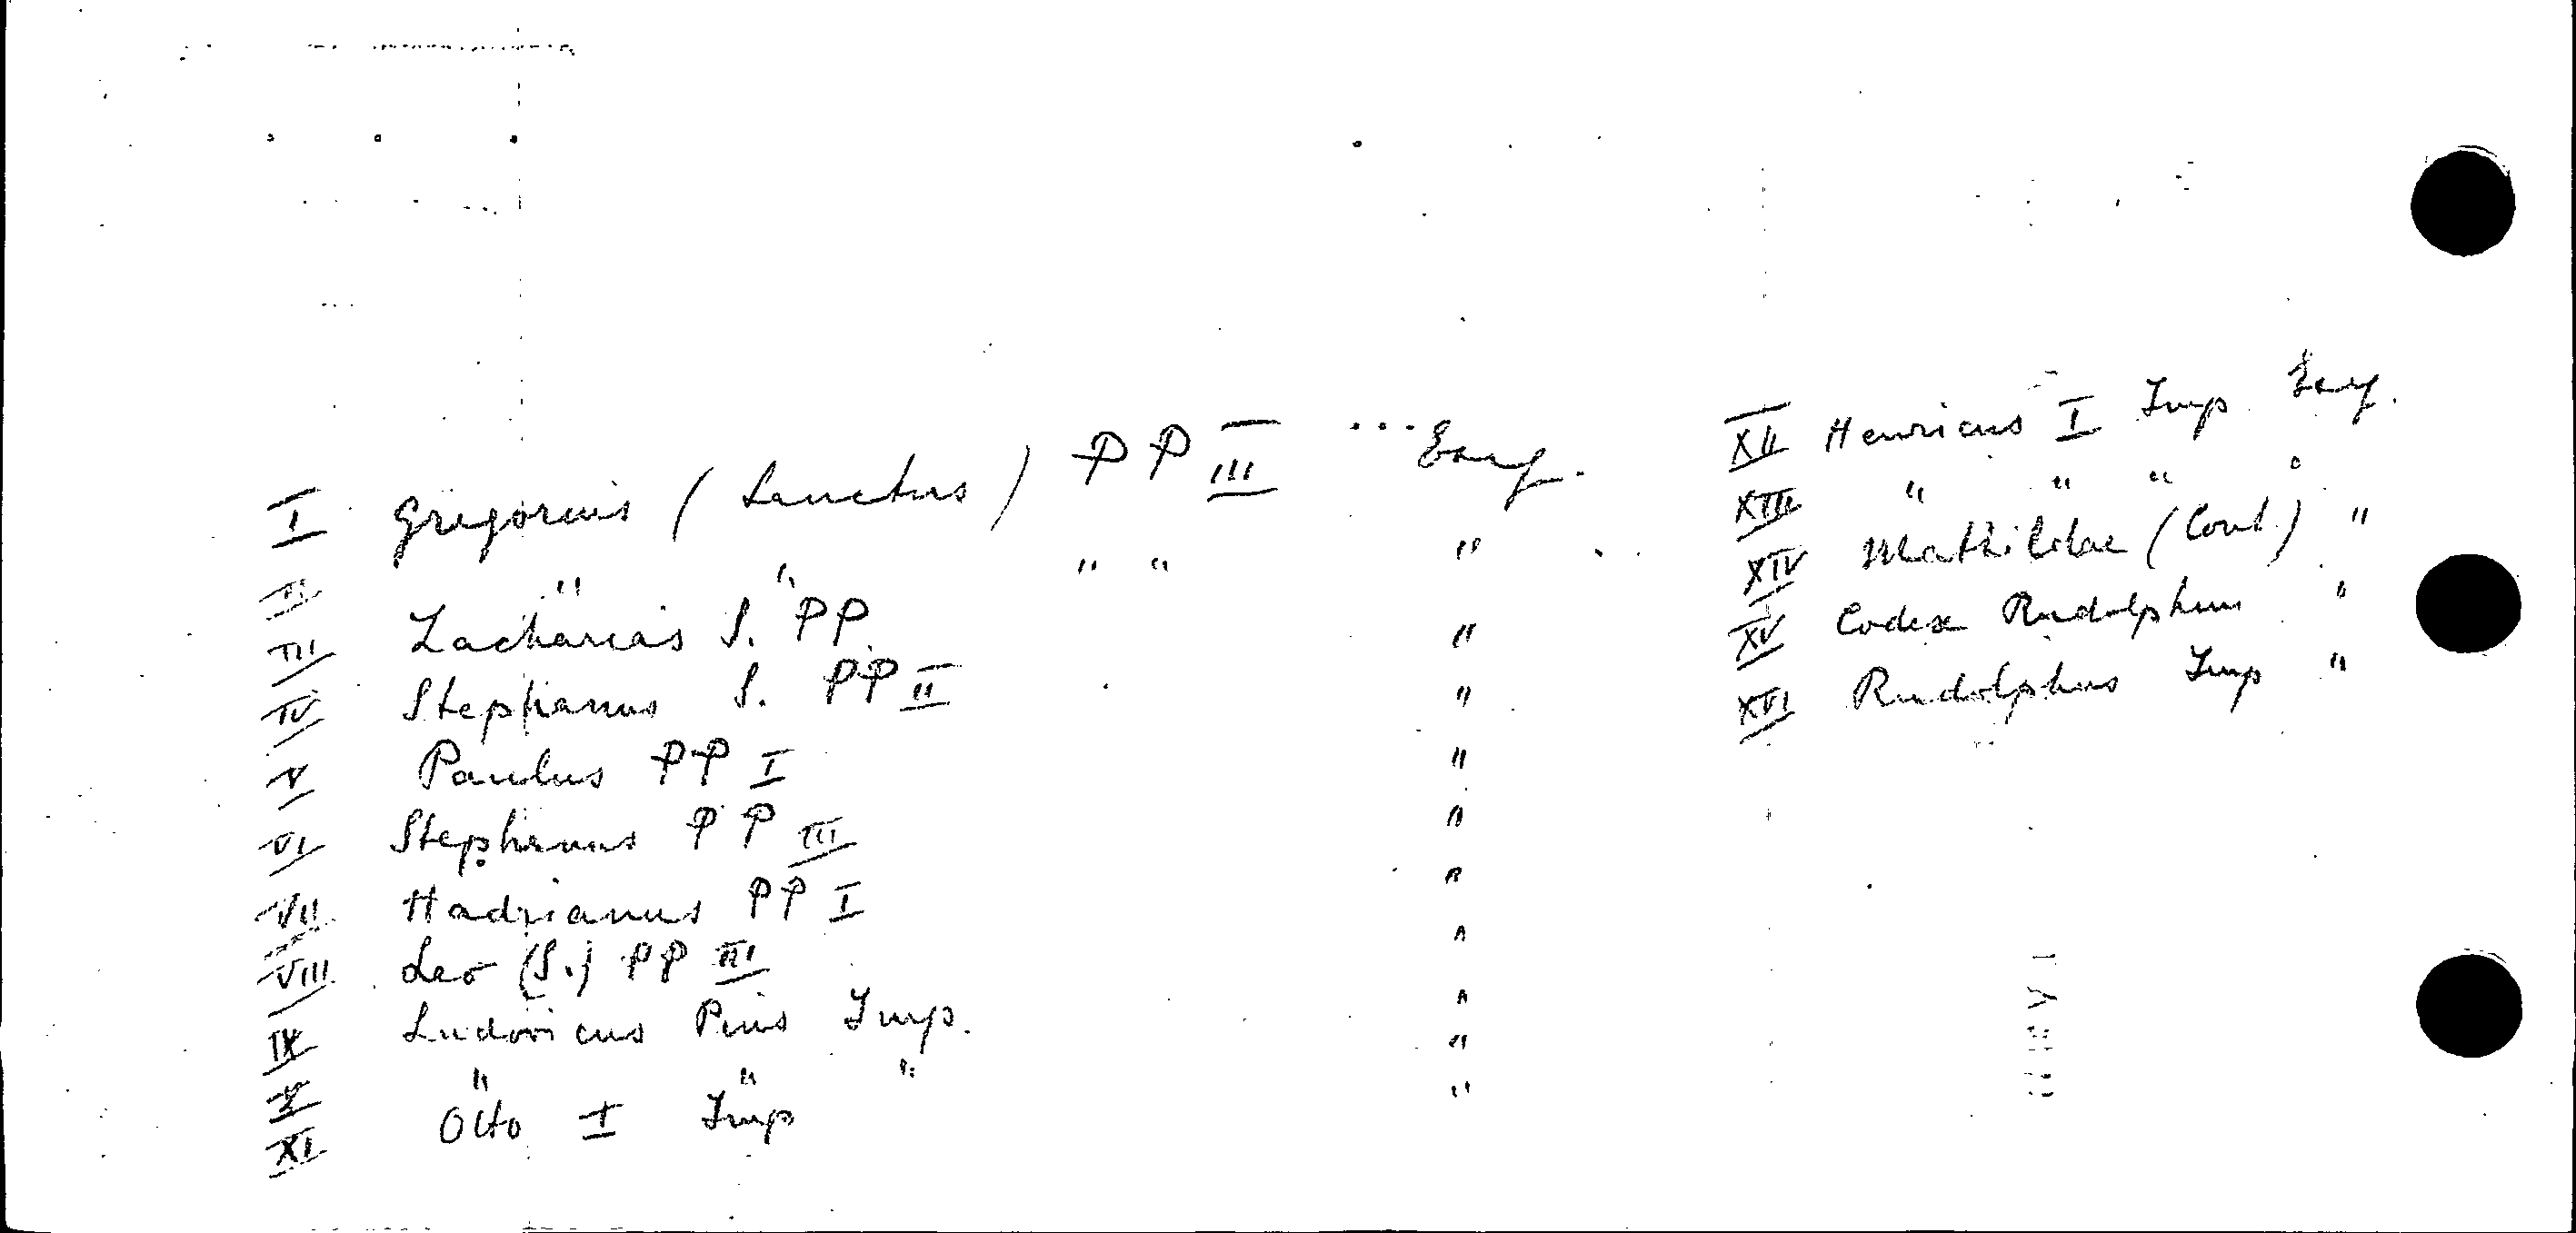 I Gregorius (Sanctus) PP III ... Evang.
II " " " " "
III Zacharias S. PP "
IV Stephanus S. PP II "
V Paulus PP I "
VI Stephanus PP III "
VII Hadrianus PP I "
VIII Leo (S.) PP III "
IX Ludovicus Pius Imp. "
X " " " "
XI Otto I Imp "
XII Henricus I Imp
XIII " " " "
XIV Mathildae (Cont.) "
XV Codex Rudolphus "
XVI Rudolphus Imp "